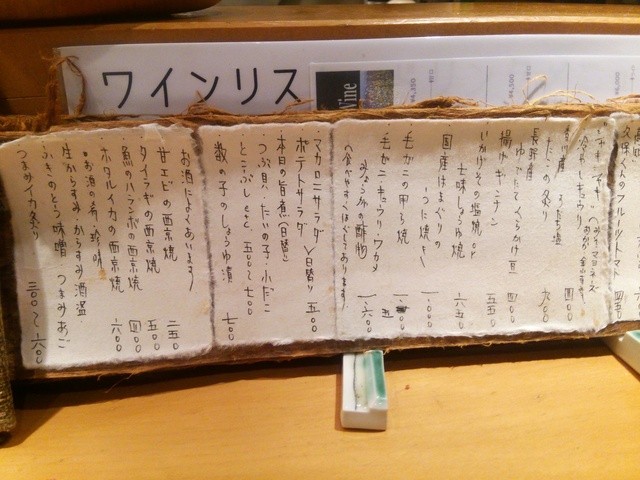 ワインリス
Wine
久保くんのフルーツトマト
冷やしキュウリ
たこの炙り
長野産
ゆでたてくらかけ豆 四〇〇
揚げギンナン 五五〇
いかげその塩焼 or
七味しょうゆ焼 六五〇
国産はまぐりの
つに焼き 一、〇〇〇
毛がにの甲ら焼
毛がに キュウリ ワカメ
の酢物 一、六〇〇
(食べやすくほぐしてあります)
マカロニサラダ
ポテトサラダ 日替り 五〇〇
本日の旨煮(日替)
つぶ貝・たいの子・小だこ
とこぶし etc 五〇〇〜七〇〇
数の子のしょうゆ漬 七〇〇
お酒によくあいます
甘エビの西京焼 二五〇
タイラギの西京焼 五〇〇
魚のハランボの西京焼 四〇〇
ホタルイカの西京焼 六〇〇
お酒の肴 珍味
生からすみ からすみ 酒盗
ふきのとう味噌 つまみあご
つまみイカ炙り 三〇〇〜六〇〇